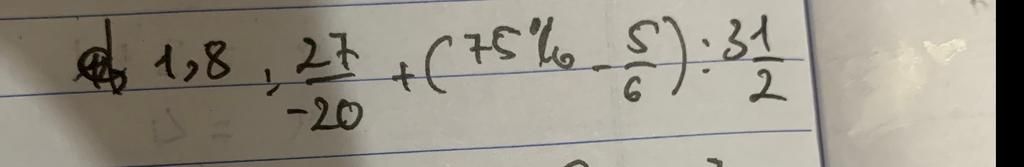 d, 1,8 : 27/-20 + (75% - 5/6) : 3 1/2